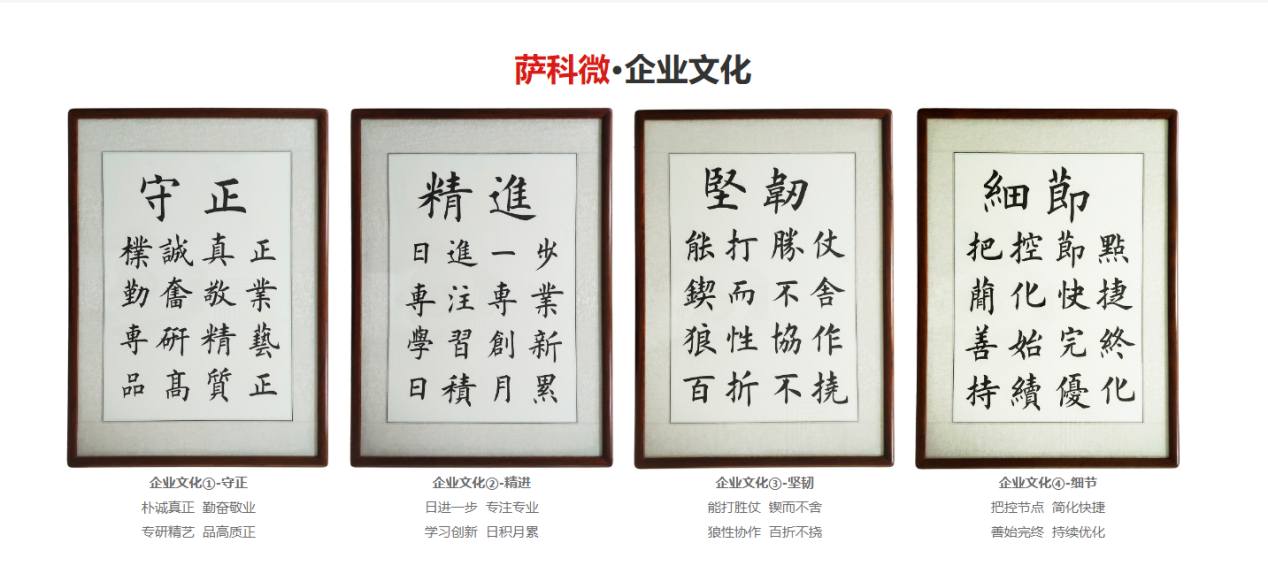 萨科微·企业文化
守正
樸誠真正
勤奮敬業
専研精藝
品高質正
精進
日進一步
専注専業
學習創新
日積月累
堅韌
能打勝仗
鍥而不舍
狼性協作
百折不撓
細節
把控節點
簡化快捷
善始完終
持續優化
企业文化①-守正
朴诚真正 勤奋敬业
专研精艺 品高质正
企业文化②-精进
日进一步 专注专业
学习创新 日积月累
企业文化③-坚韧
能打胜仗 锲而不舍
狼性协作 百折不挠
企业文化④-细节
把控节点 简化快捷
善始完终 持续优化